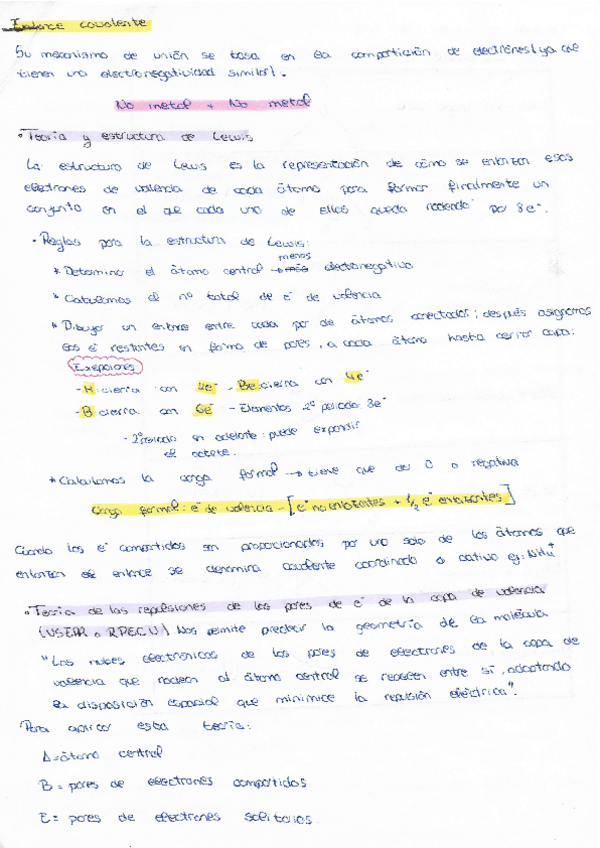 Enlace covalente
Su mecanismo de unión se basa en la compartición de electrones (ya que
tienen una electronegatividad similar).
No metal + No metal
• Teoría y estructura de Lewis
La estructura de Lewis es la representación de cómo se enlazan esos
electrones de valencia de cada átomo para formar finalmente un
conjunto en el que cada uno de ellos queda rodeado por 8e⁻.
· Reglas para la estructura de Lewis:
menos
* Determino el átomo central → electronegativo
* Calculamos el nº total de e⁻ de valencia
* Dibujar un enlace entre cada par de átomos conectados; después asignamos
los e⁻ restantes en forma de pares, a cada átomo hasta cerrar capa:
Exepciones
- H cierra con e⁻ - Be cierra con 4e⁻
- B cierra con 6e⁻ - Elementos 2º periodo 8e⁻
- 2º periodo en adelante: puede expandir
el octete.
* Calculamos la carga formal → tiene que dar 0 o negativa
Carga formal: e⁻ de valencia - [e⁻ no enlazantes + 1/2 e⁻ enlazantes]
Cuando los e⁻ compartidos son proporcionados por uno solo de los átomos que
enlazan el enlace se denomina covalente coordinado o dativo ej:
• Teoría de las repulsiones de los pares de e⁻ de la capa de valencia
(VSEPR o RPECV) Nos permite predecir la geometría de la molécula
"Las nubes electrónicas de los pares de electrones de la capa de
valencia que rodean al átomo central se repelen entre sí, adoptando
la disposición espacial que minimice la repulsión eléctrica".
Para aplicar esta teoría:
A = átomo central
B = pares de electrones compartidos
E = pares de electrones solitarios.